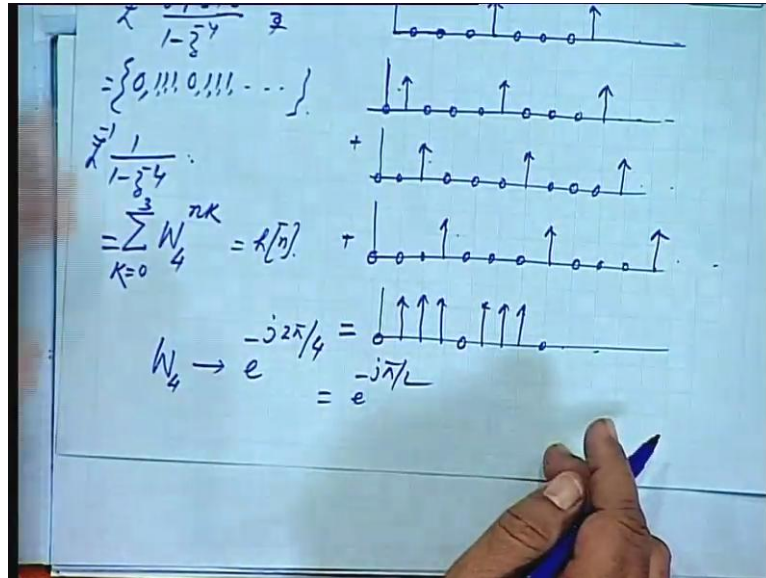 1-z^-4
={0,1,1,1,0,1,1,1,- - -}.
Z^-1 1/(1-z^-4).
= Σ_{K=0}^{3} W_4^{nK} = h[n].
W_4 → e^{-j2π/4}
= e^{-jπ/2}
+
+
=